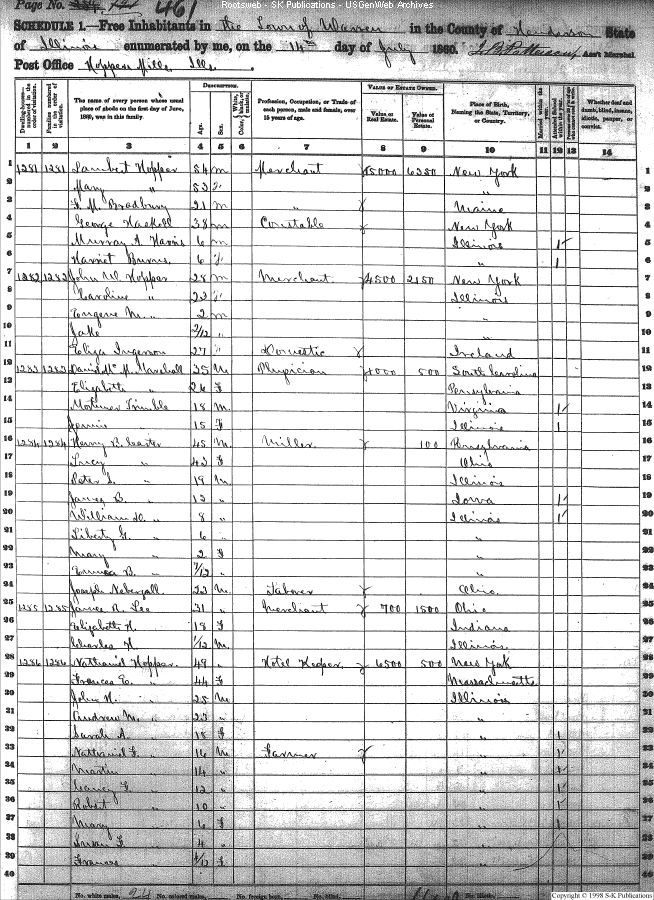 Rootsweb - SK Publications - USGenWeb Archives
Page No. 461
SCHEDULE 1.—Free Inhabitants in the Town of Warren in the County of Henderson State
of Illinois enumerated by me, on the 14th day of July 1860. Ass't Marshal.
Post Office Hopper Mills, Ills
Dwelling-houses—numbered in the order of visitation.
Families numbered in the order of visitation.
The name of every person whose usual place of abode on the first day of June, 1860, was in this family.
DESCRIPTION.
Age.
Sex.
Color, White, black, or mulatto.
Profession, Occupation, or Trade of each person, male and female, over 15 years of age.
VALUE OF ESTATE OWNED.
Value of Real Estate.
Value of Personal Estate.
Place of Birth, Naming the State, Territory, or Country.
Married within the year.
Attended School within the year.
Whether deaf and dumb, blind, insane, idiotic, pauper, or convict.
1 2 3 4 5 6 7 8 9 10 11 12 13 14
1 1281 1281 Lambert Hopper 54 m Merchant 15000 6350 New York 1
2 Mary " 53 f " 2
3 F. M. Bradbury 21 m " Maine 3
4 George Haskell 38 m Constable New York 4
5 Murray A Harris 6 m Illinois 1 5
6 Harriet Burns 6 f 1 6
7 1282 1282 John W Hopper 28 m Merchant 4500 2150 New York 7
8 Caroline " 22 f Illinois 8
9 Eugene M. " 2 m " 9
10 Jake 2/12 " " 10
11 Eliza Ingerson 27 " Domestic Ireland 11
12 1283 1283 David Mc Marshall 35 M Physician 4000 500 South Carolina 12
13 Elizabeth " 26 F Pensylvania 13
14 Mortimer Trimble 18 M. Virginia 1 14
15 Jennie 15 F Illinois 1 15
16 1284 1284 Henry B. Carter 45 M Miller 100 Pensylvania 16
17 Lucy " 42 F Ohio 17
18 Peter L. " 19 M Illinois 18
19 James B. " 12 " Iowa 1 19
20 William D. " 8 " Illinois 1 20
21 Liberty G. " 6 " " 21
22 Mary " 2 F " 22
23 Emma B. " 7/12 " " 23
24 Joseph Nebergall 22 M. Laborer Ohio 24
25 1285 1285 James R. Lee 31 " Merchant 700 1500 Ohio 25
26 Elizabeth H. 18 F Indiana 26
27 Charles H 1/12 M. Illinois. 27
28 1286 1286 Nathaniel Hopper. 49 " Hotel Keeper. 6500 500 New York 28
29 Frances E. " 44 F Massachusetts 29
30 John H. " 25 M Illinois 30
31 Andrew M. " 23 " " 31
32 Sarah A. 18 F " 1 32
33 Nathaniel F. " 16 M Farmer " 1 33
34 Martin " 14 " " 1 34
35 " 12 " " 1 35
36 Robert " 10 " " 1 36
37 Mary " 6 F " 1 37
38 Susan F. " 4 " " 38
39 Frances " 4/12 F " 39
40 40
No. white males, No. colored males, No. foreign born, No. blind,
Copyright © 1998 S-K Publications